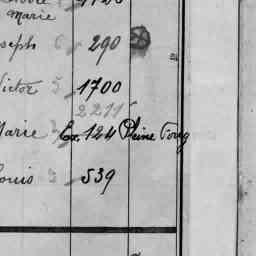 Marie
oseph 6 290
Victor 5 1700
2211
Marie Ex. 124 Pleine Forig
ouis 5 539